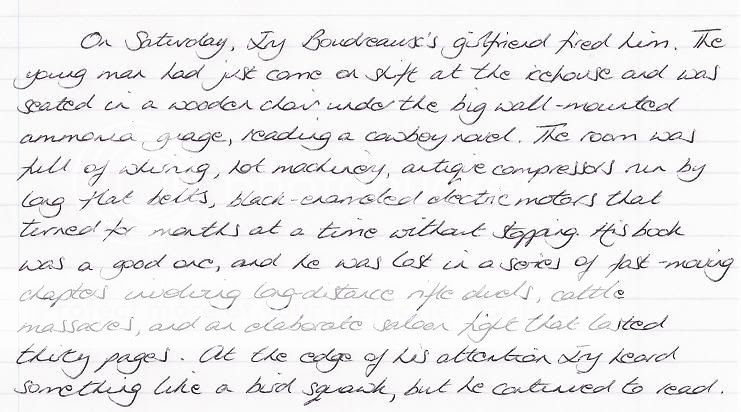 On Saturday, Ivy Boudreaux's girlfriend fired him. The
young man had just come on shift at the icehouse and was
seated in a wooden chair under the big wall-mounted
ammonia guage, reading a cowboy novel. The room was
full of whirring, hot machinery, antique compressors run by
long flat belts, black-enameled electric motors that
turned for months at a time without stopping. His book
was a good one, and he was lost in a series of fast-moving
chapters involving long-distance rifle duels, cattle
massacres, and an elaborate saloon fight that lasted
thirty pages. At the edge of his attention Ivy heard
something like a bird squawk, but he continued to read.